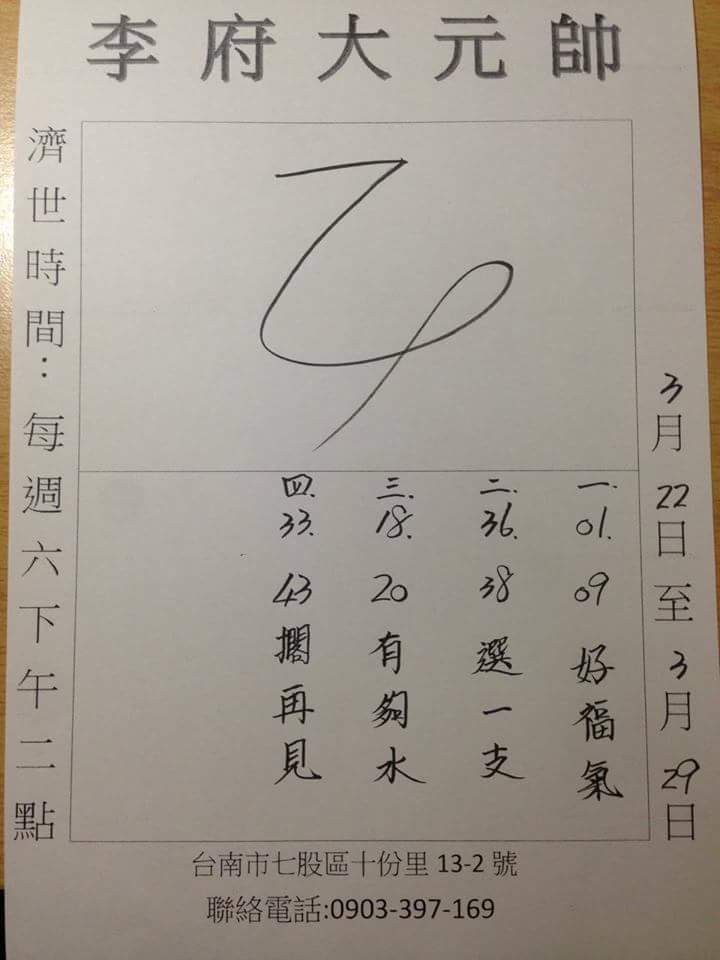 李府大元帥
濟世時間：每週六下午二點
3月22日至3月29日
一.01.09好福氣
二.36.38選一支
三.18.20有夠水
四.33.43擱再見
台南市七股區十份里13-2號
聯絡電話:0903-397-169